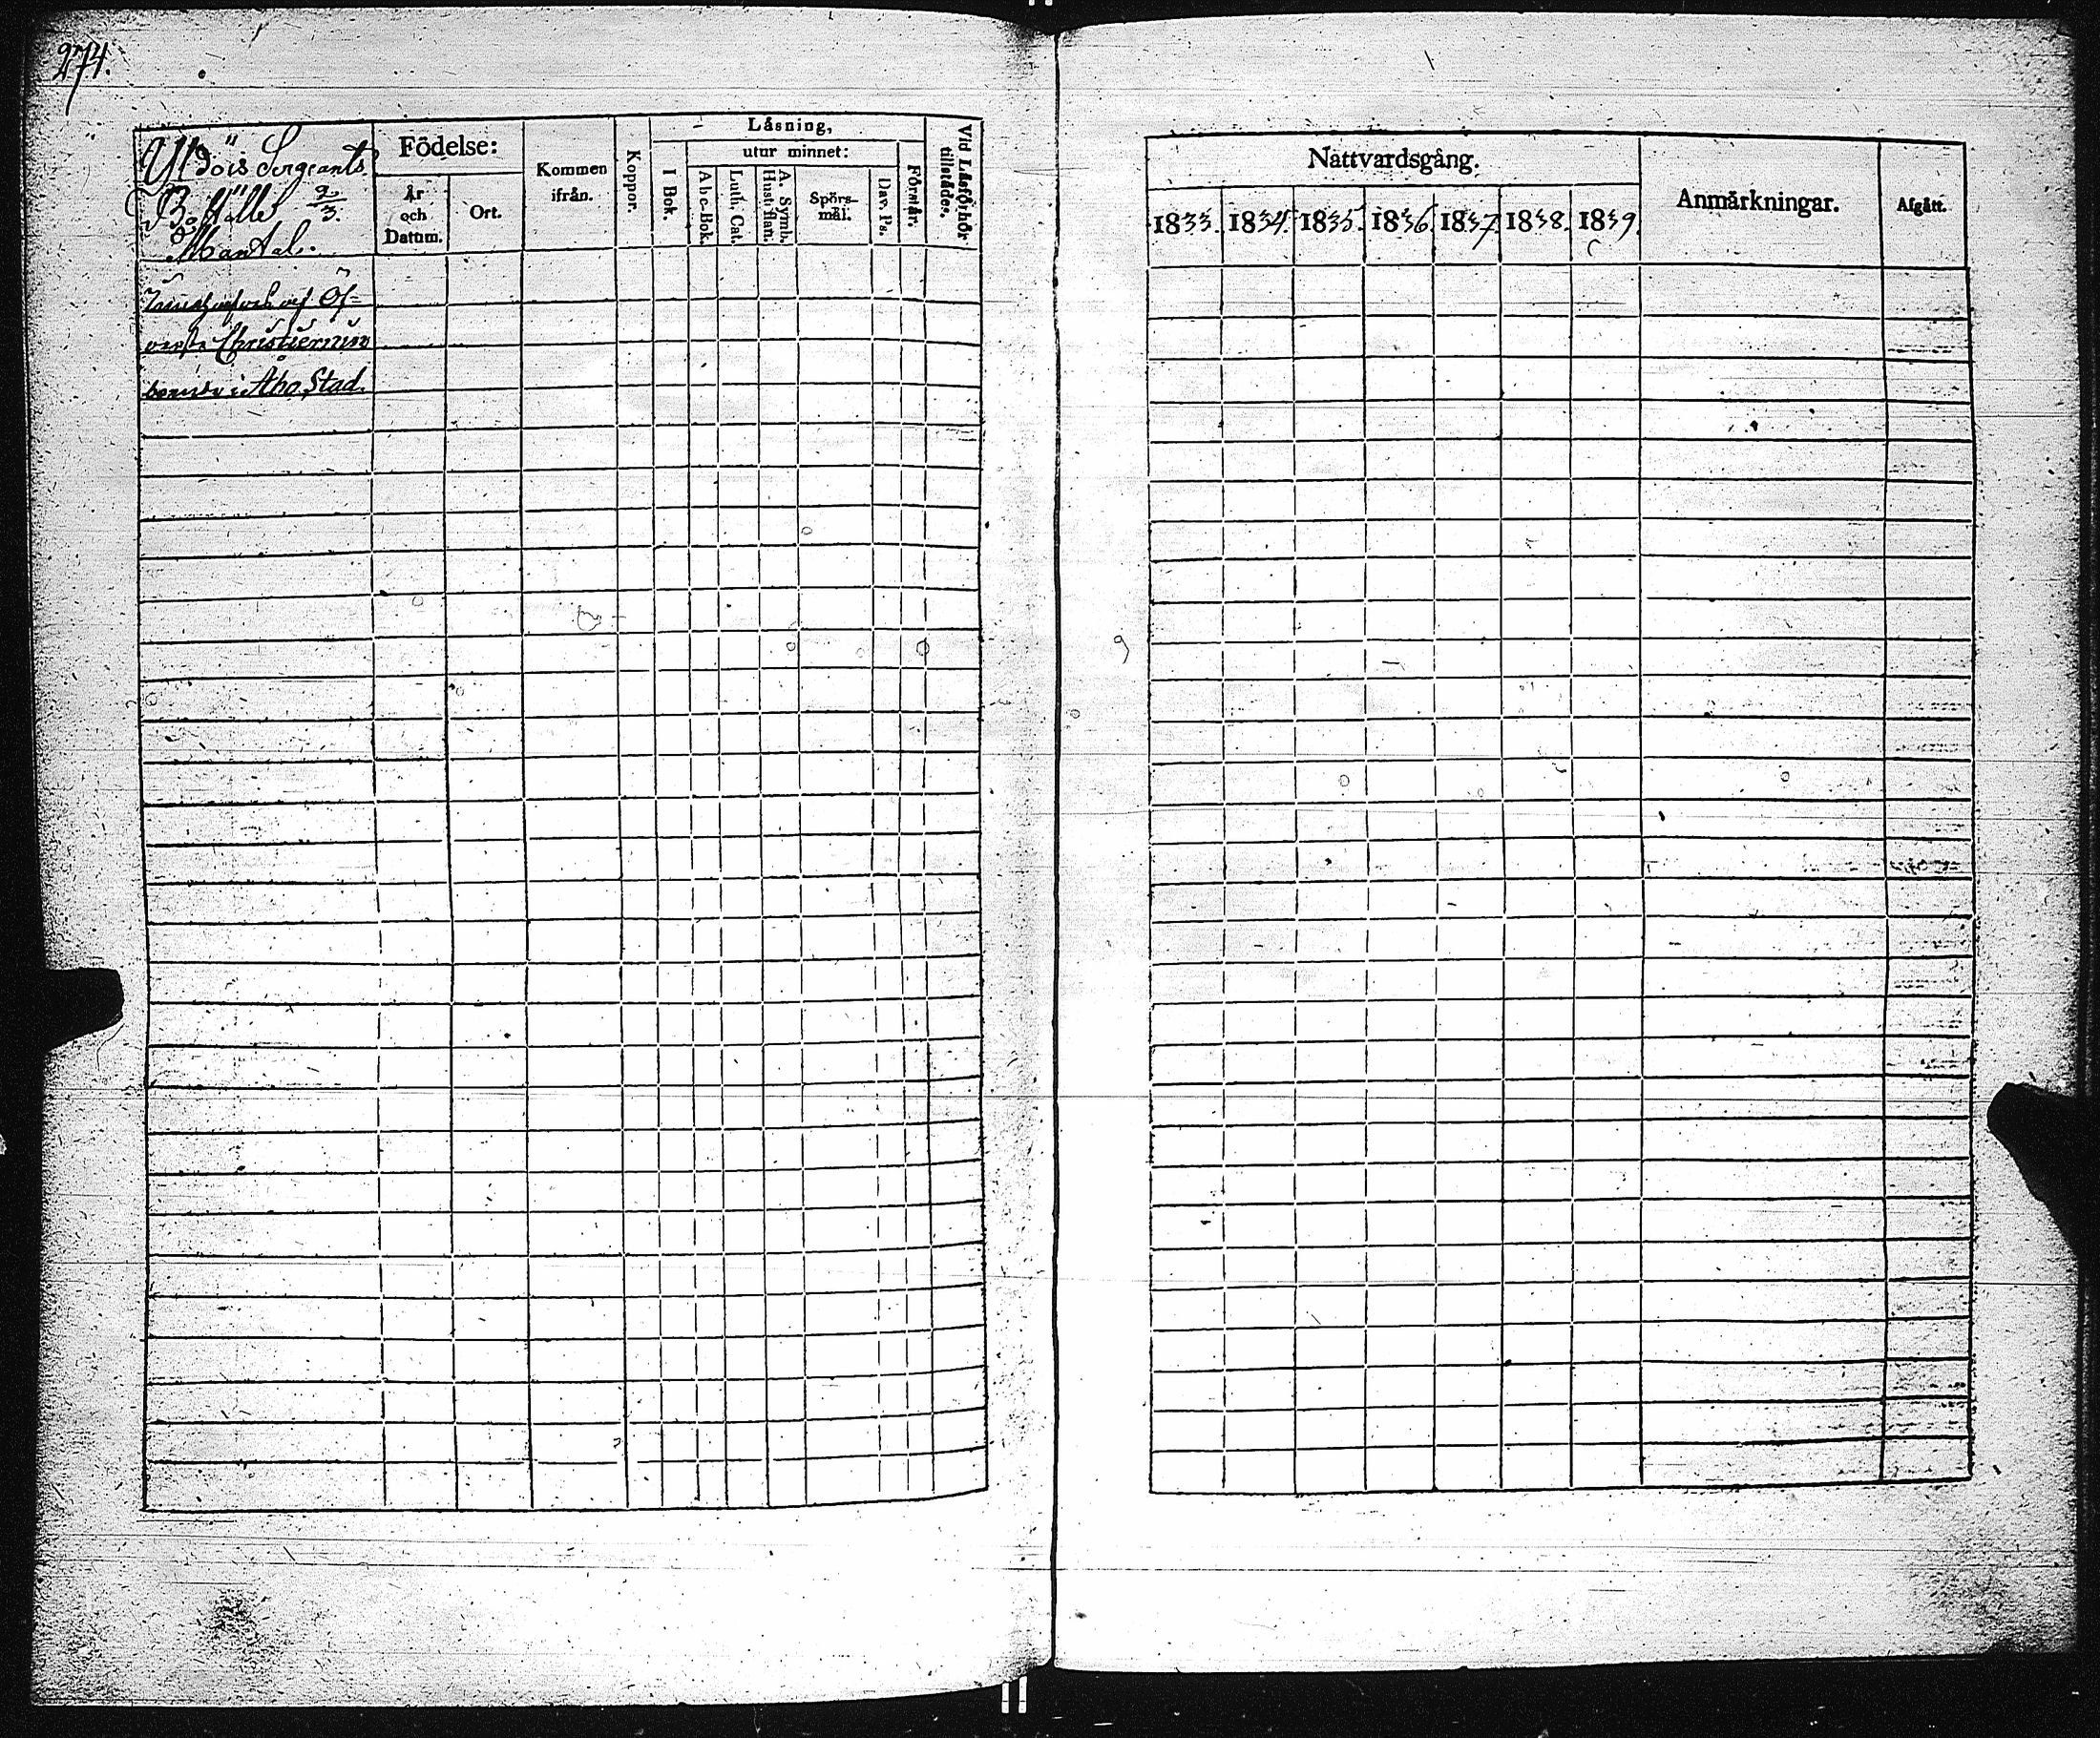 274.
Yldöis Sergeants
Boställe 2/3.
Mantal.
Födelse:
År
och
Datum.
Ort.
Kommen
ifrån.
Koppor.
Låsning,
I Bok.
utur minnet:
A b c-Bok.
Luth. Cat.
A. Symb.
Hust. flan.
Spörs-
mål.
Dav. Ps.
Förstår.
Vid Låsförhör
tillstådes.
Öf-
verste Christiernin
boende i Åbo Stad.
Nattvardsgång.
1833. 1834. 1835. 1836. 1837. 1838. 1839.
Anmårkningar.
Afgått.